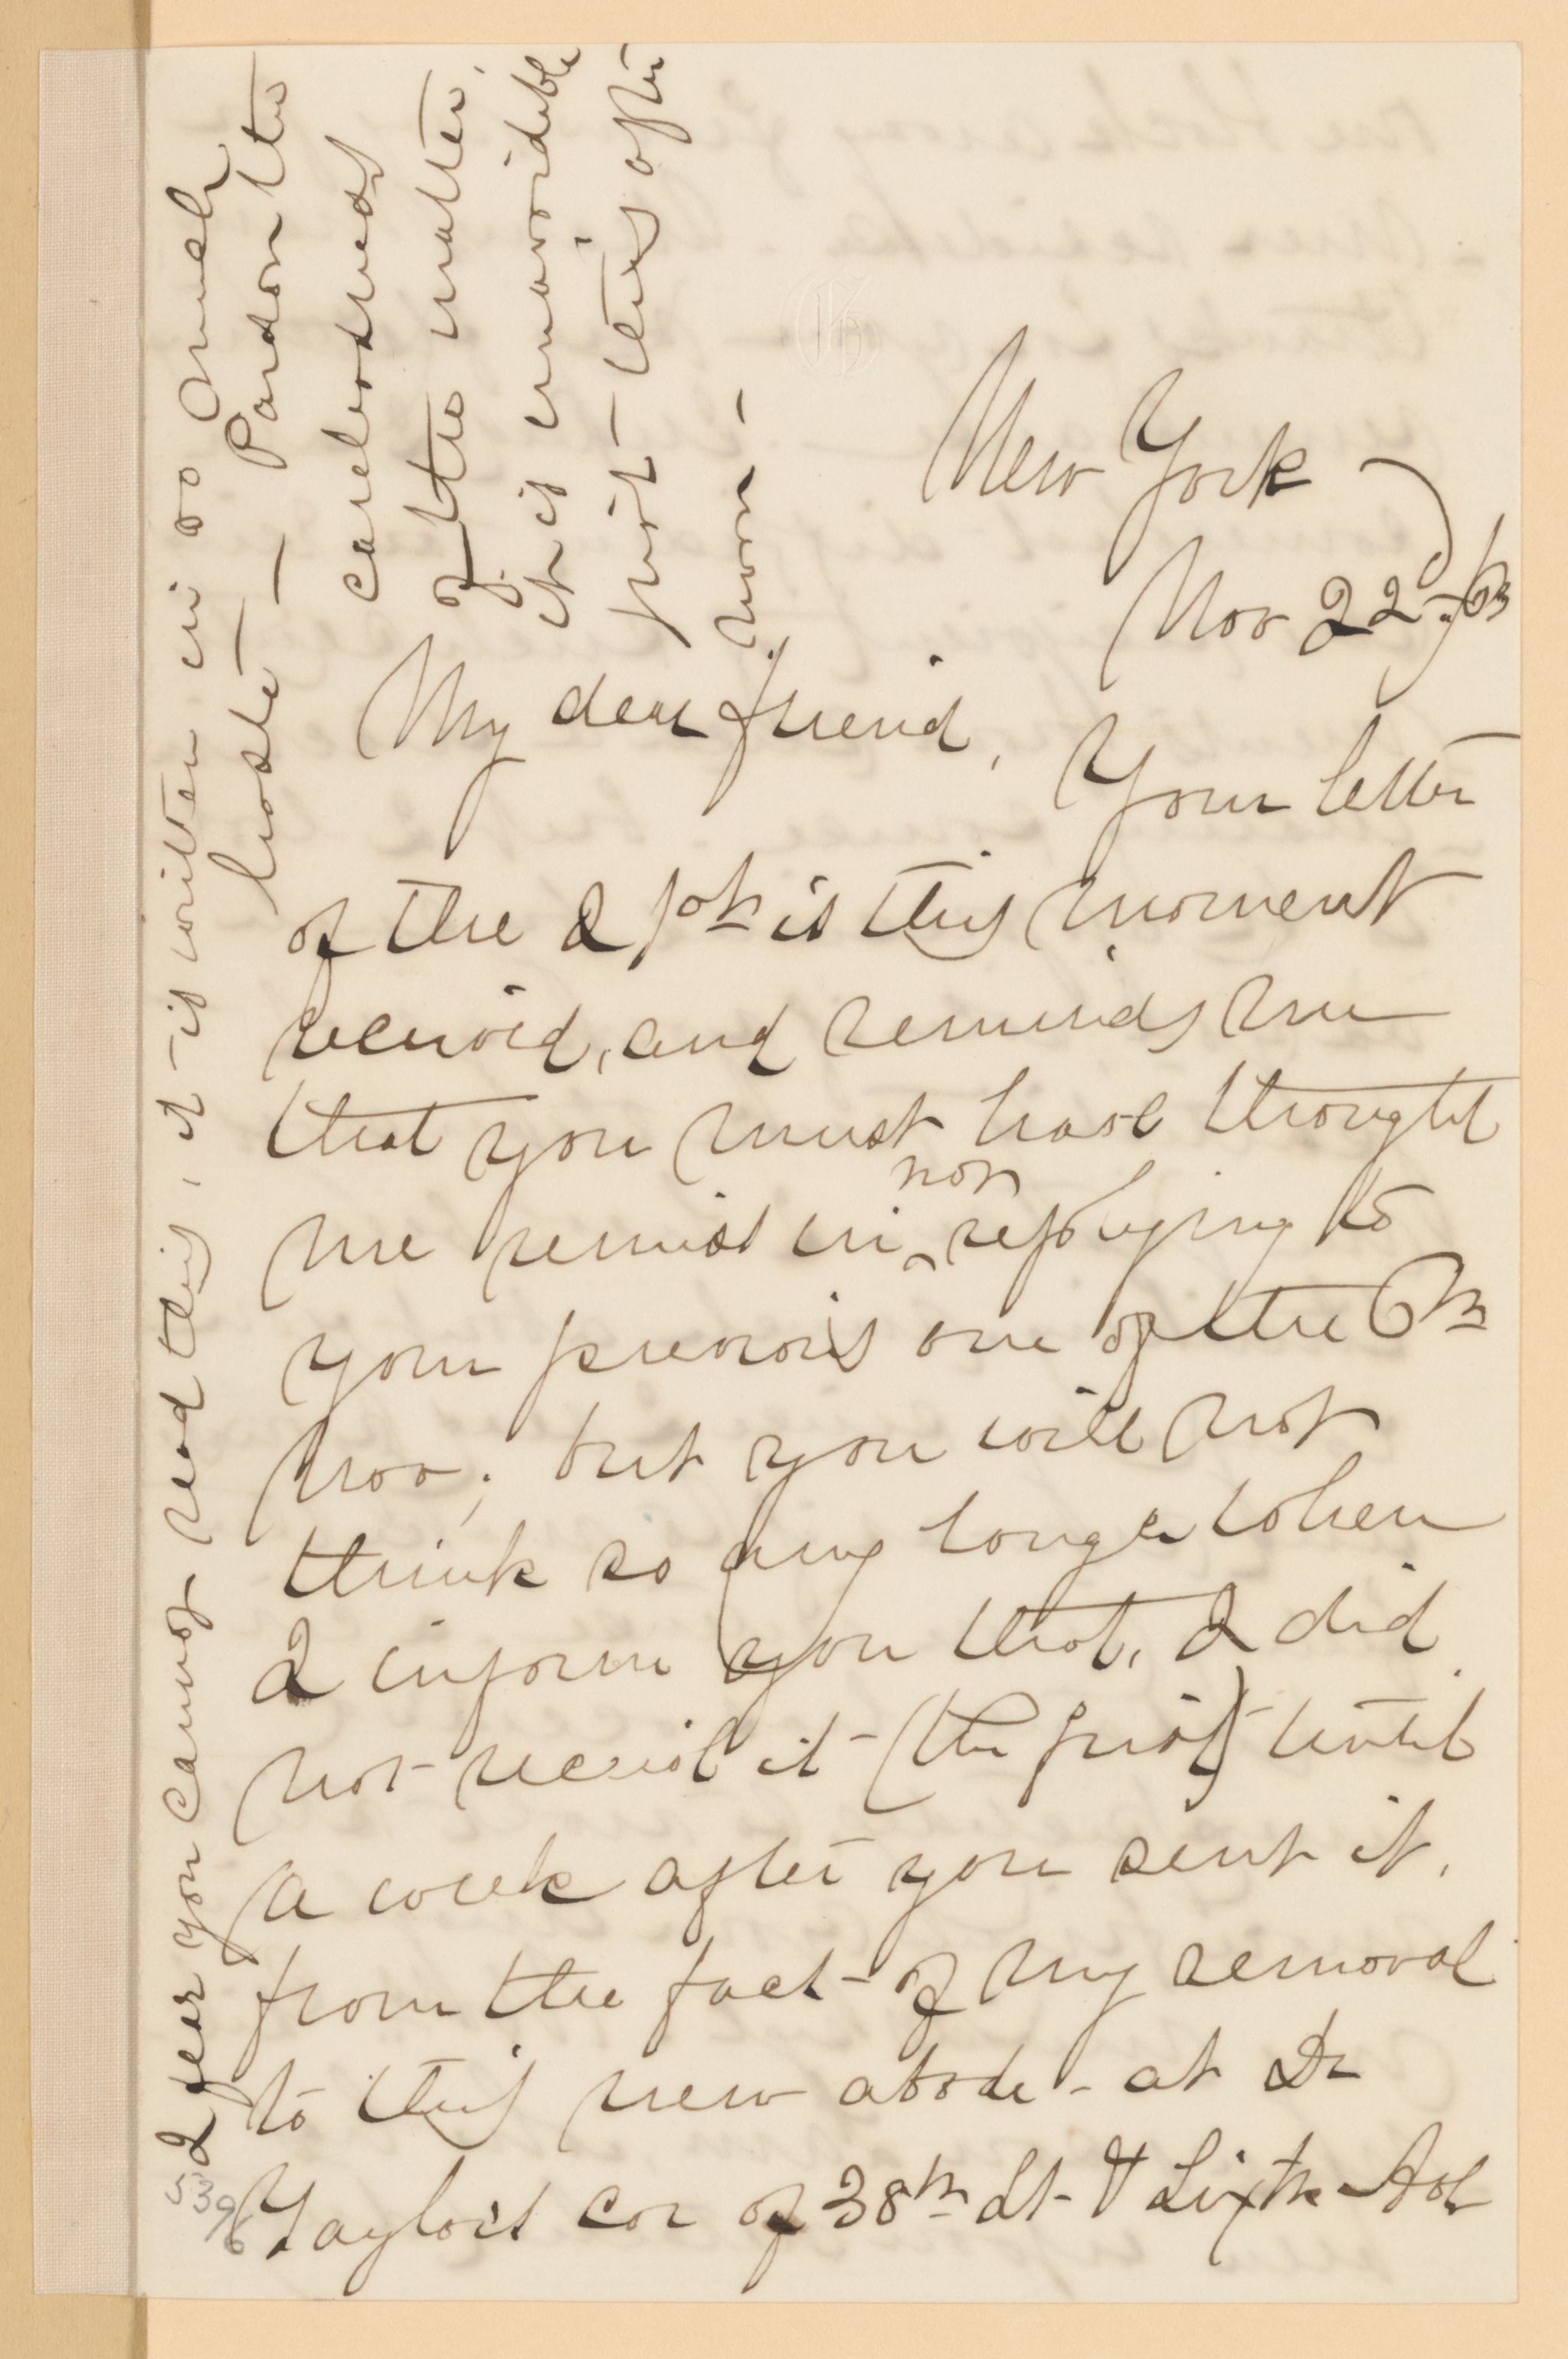 New York
Nov 22-/63
My dear friend,
Your letter
of the 21st is this moment
received, and reminds me
that you must have thought
me remiss in
not
replying to
your previous one of the 6th
Nov; but you will not
think so any longer when
I inform you that, I did
not receive it - (the first) until
a week after you sent it,
from the fact - of my removal
to this new abode - at Dr
Taylor's cor of 38th St - & Sixth Ave
I fear you cannot read this, it - is written in so much
haste - Pardon the
carelessness
of the matter,
it is unavoidable
just - this after
noon -
5396